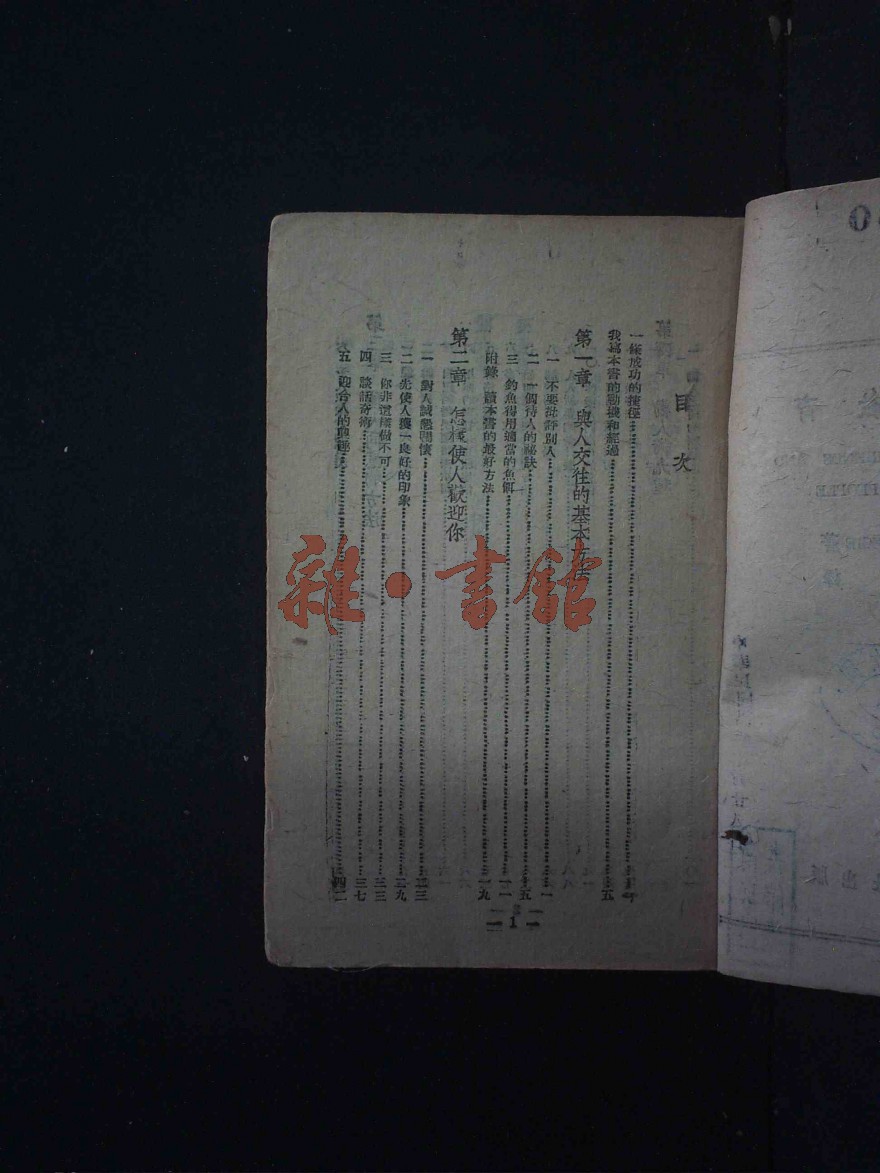 目次
一條成功的捷徑
我寫本書的動機和經過 五
第一章 與人交往的基本方法
一 不要批評別人 一
二 一個待人的祕訣 五
三 釣魚得用適當的魚餌 一一
附錄 讀本書的最好方法 一九
第二章 怎樣使人歡迎你
一 對人誠懇關懷 二三
二 先使人獲一良好的印象 二九
三 你非這樣做不可 三三
四 談話奇術 三七
五 迎合人的興趣 四二
1
雜·書館
著
譯
出版